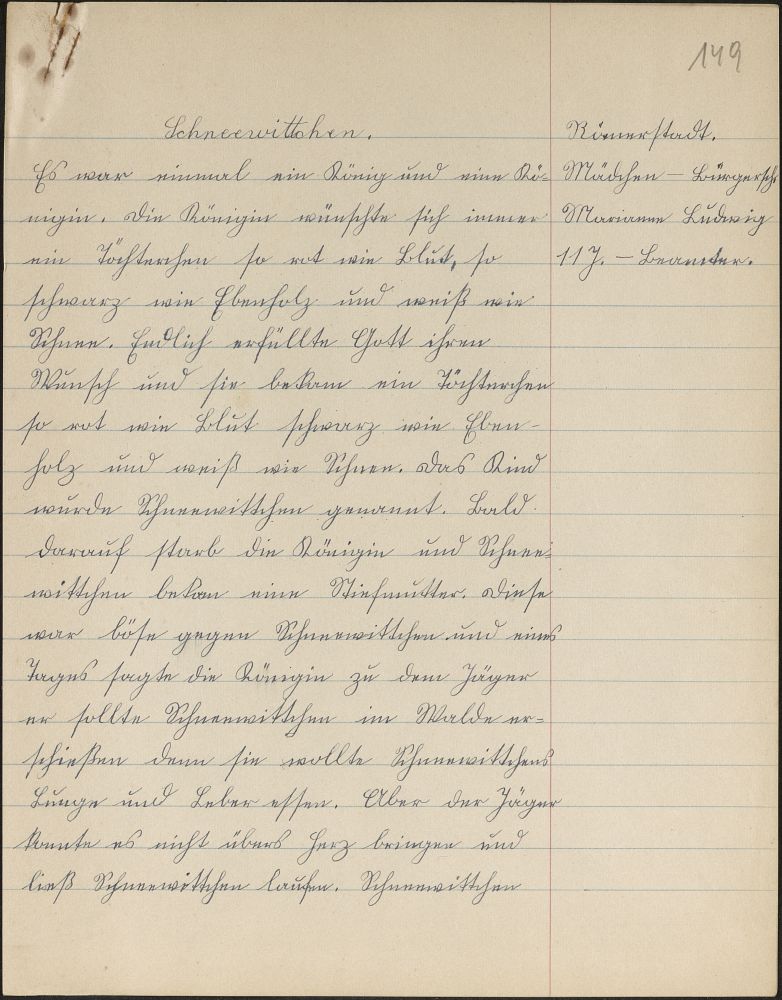 149
Schneewittchen.
Es war einmal ein König und eine Kö-
nigin. Die Königin wünschte sich immer
ein Töchterchen so rot wie Blut, so
schwarz wie Ebenholz und weiß wie
Schnee. Endlich erfüllte Gott ihren
Wunsch und sie bekam ein Töchterchen
so rot wie Blut schwarz wie Eben-
holz und weiß wie Schnee. Das Kind
wurde Schneewittchen genannt. Bald
darauf starb die Königin und Schnee-
wittchen bekam eine Stiefmutter. Diese
war böse gegen Schneewittchen und eines
Tages sagte die Königin zu dem Jäger
er sollte Schneewittchen im Walde er-
schießen denn sie wollte Schneewittchens
Lunge und Leber essen. Aber der Jäger
konnte es nicht übers Herz bringen und
ließ Schneewittchen laufen. Schneewittchen
Römerstadt.
Mädchen - Bürgersch
Marianne Ludwig
11 J. - Beamter.